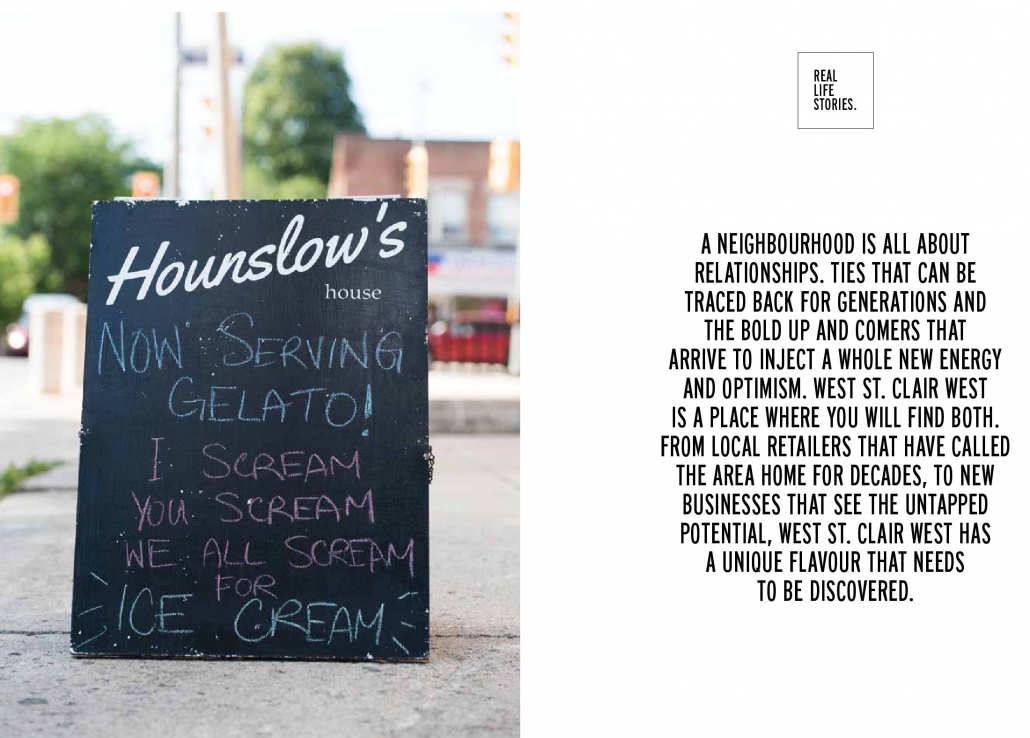 Hounslow's
house
NOW SERVING
GELATO!
I SCREAM
YOU SCREAM
WE ALL SCREAM
FOR
ICE CREAM
REAL
LIFE
STORIES.
A NEIGHBOURHOOD IS ALL ABOUT
RELATIONSHIPS. TIES THAT CAN BE
TRACED BACK FOR GENERATIONS AND
THE BOLD UP AND COMERS THAT
ARRIVE TO INJECT A WHOLE NEW ENERGY
AND OPTIMISM. WEST ST. CLAIR WEST
IS A PLACE WHERE YOU WILL FIND BOTH.
FROM LOCAL RETAILERS THAT HAVE CALLED
THE AREA HOME FOR DECADES, TO NEW
BUSINESSES THAT SEE THE UNTAPPED
POTENTIAL, WEST ST. CLAIR WEST HAS
A UNIQUE FLAVOUR THAT NEEDS
TO BE DISCOVERED.